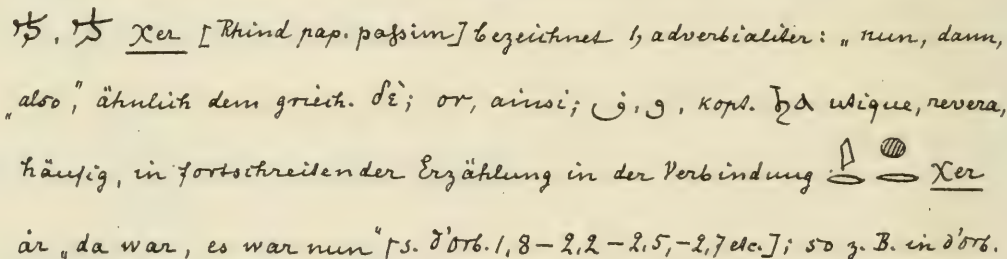 χer [Rhind pap. passim] bezeichnet 1, adverbialiter: „nun, dann,
„also“, ähnlich dem griech. δὲ; or, ainsi; ف, و, kopt. ϧⲁ utique, revera,
häufig, in fortschreitender Erzählung in der Verbindung 𓇋𓂋 𓐍𓂋 χer
ȧr „da war, es war nun“ [s. d'Orb. 1, 8 – 2,2 – 2,5, – 2,7 etc.]; so z. B. in d'Orb.